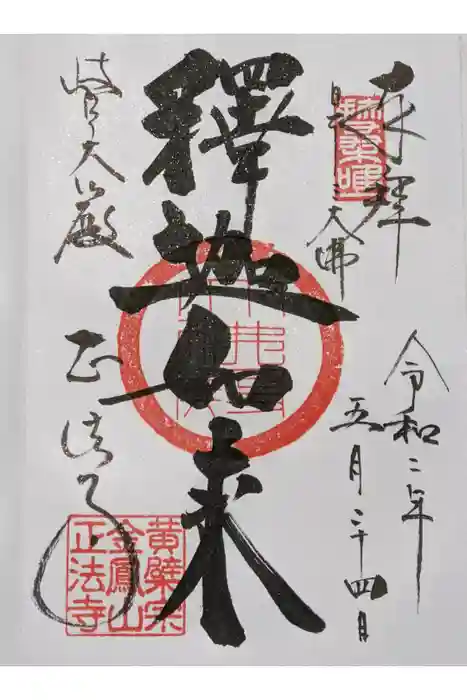 奉拝
三大佛
令和二年
五月二十四日
釋迦如来
岐阜大仏殿
正法寺
黄檗宗
金鳳山
正法寺